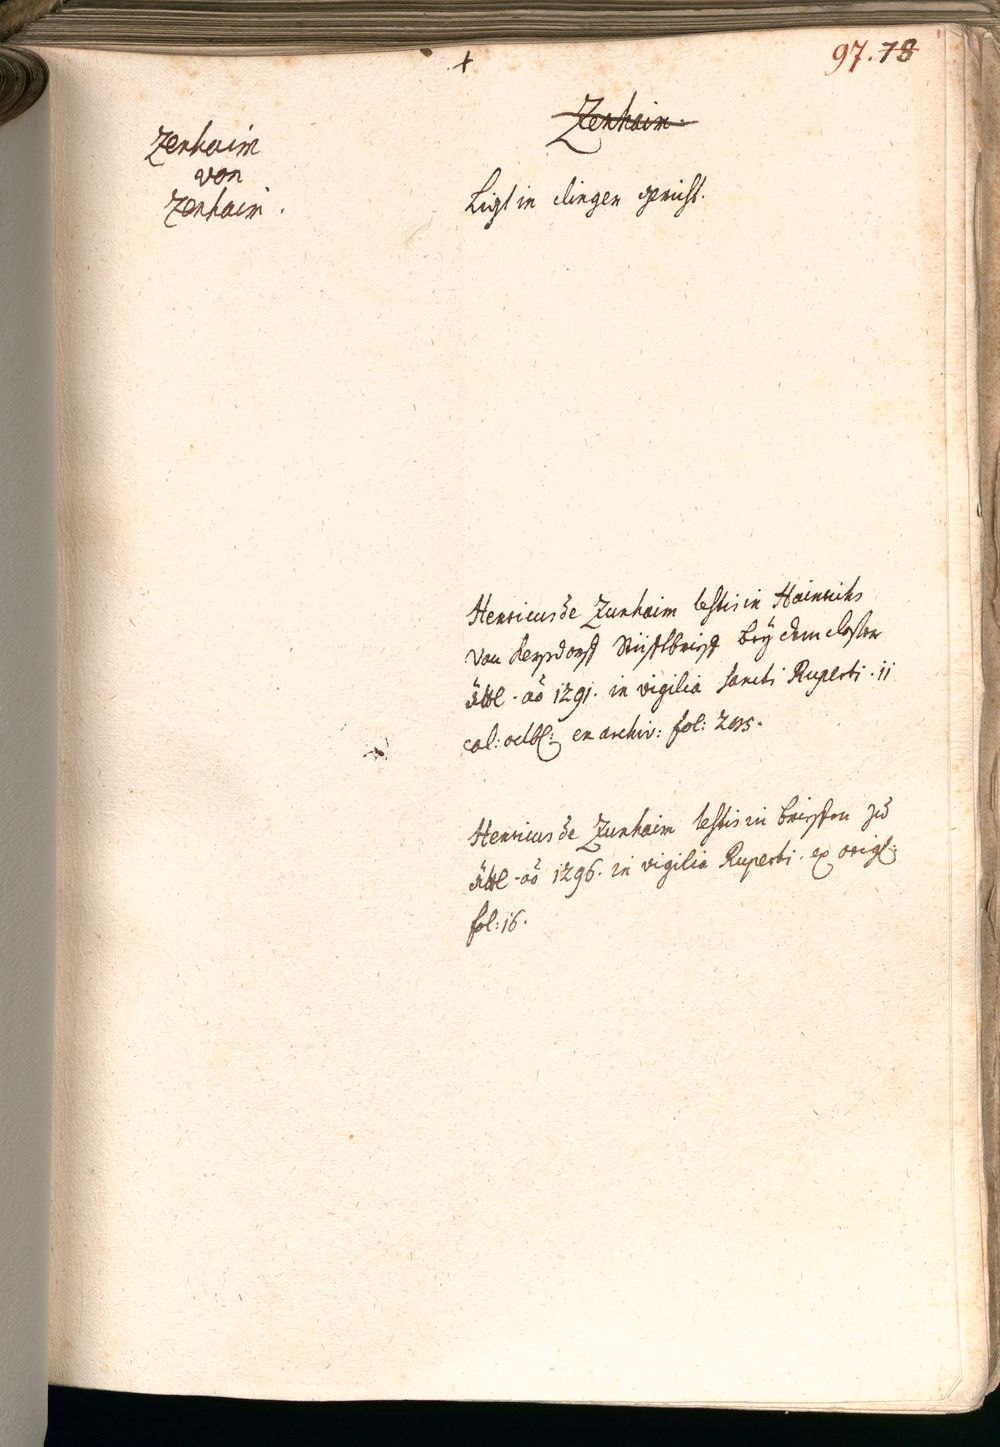 +
97. 78
Zenhaim.
Zenhaim
von
Zenhaim.
Ligt in clingen gericht.
Henricus de Zunhaim testis in Hainrichs
von Stifftbrieff bey dem closter
Ättl. ao 1291. in vigilia sancti Ruperti. 11
cal: octbr: ex archiv: fol: 2035.
Henricus de Zunhaim testis in brieffen zu
Ättl. ao 1296. in vigilia Ruperti. ex origl:
fol: 16.